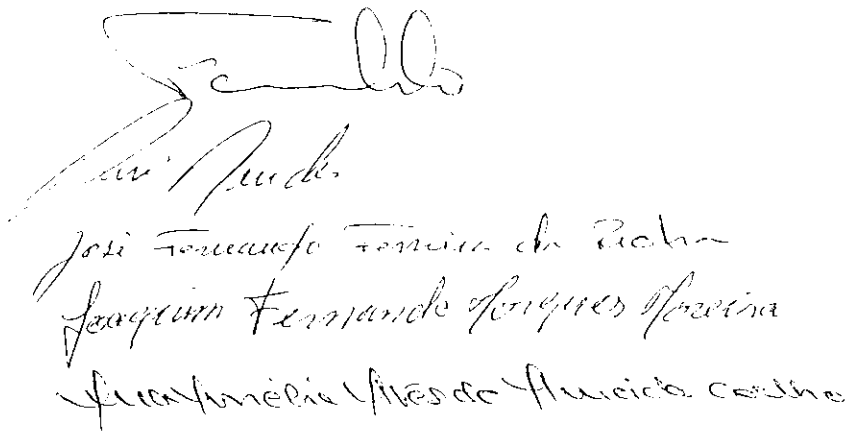 Mendes
José Fernando Ferreira da Rocha
Joaquim Fernando Marques Moreira
Ana Amélia Alves de Almeida Coelho